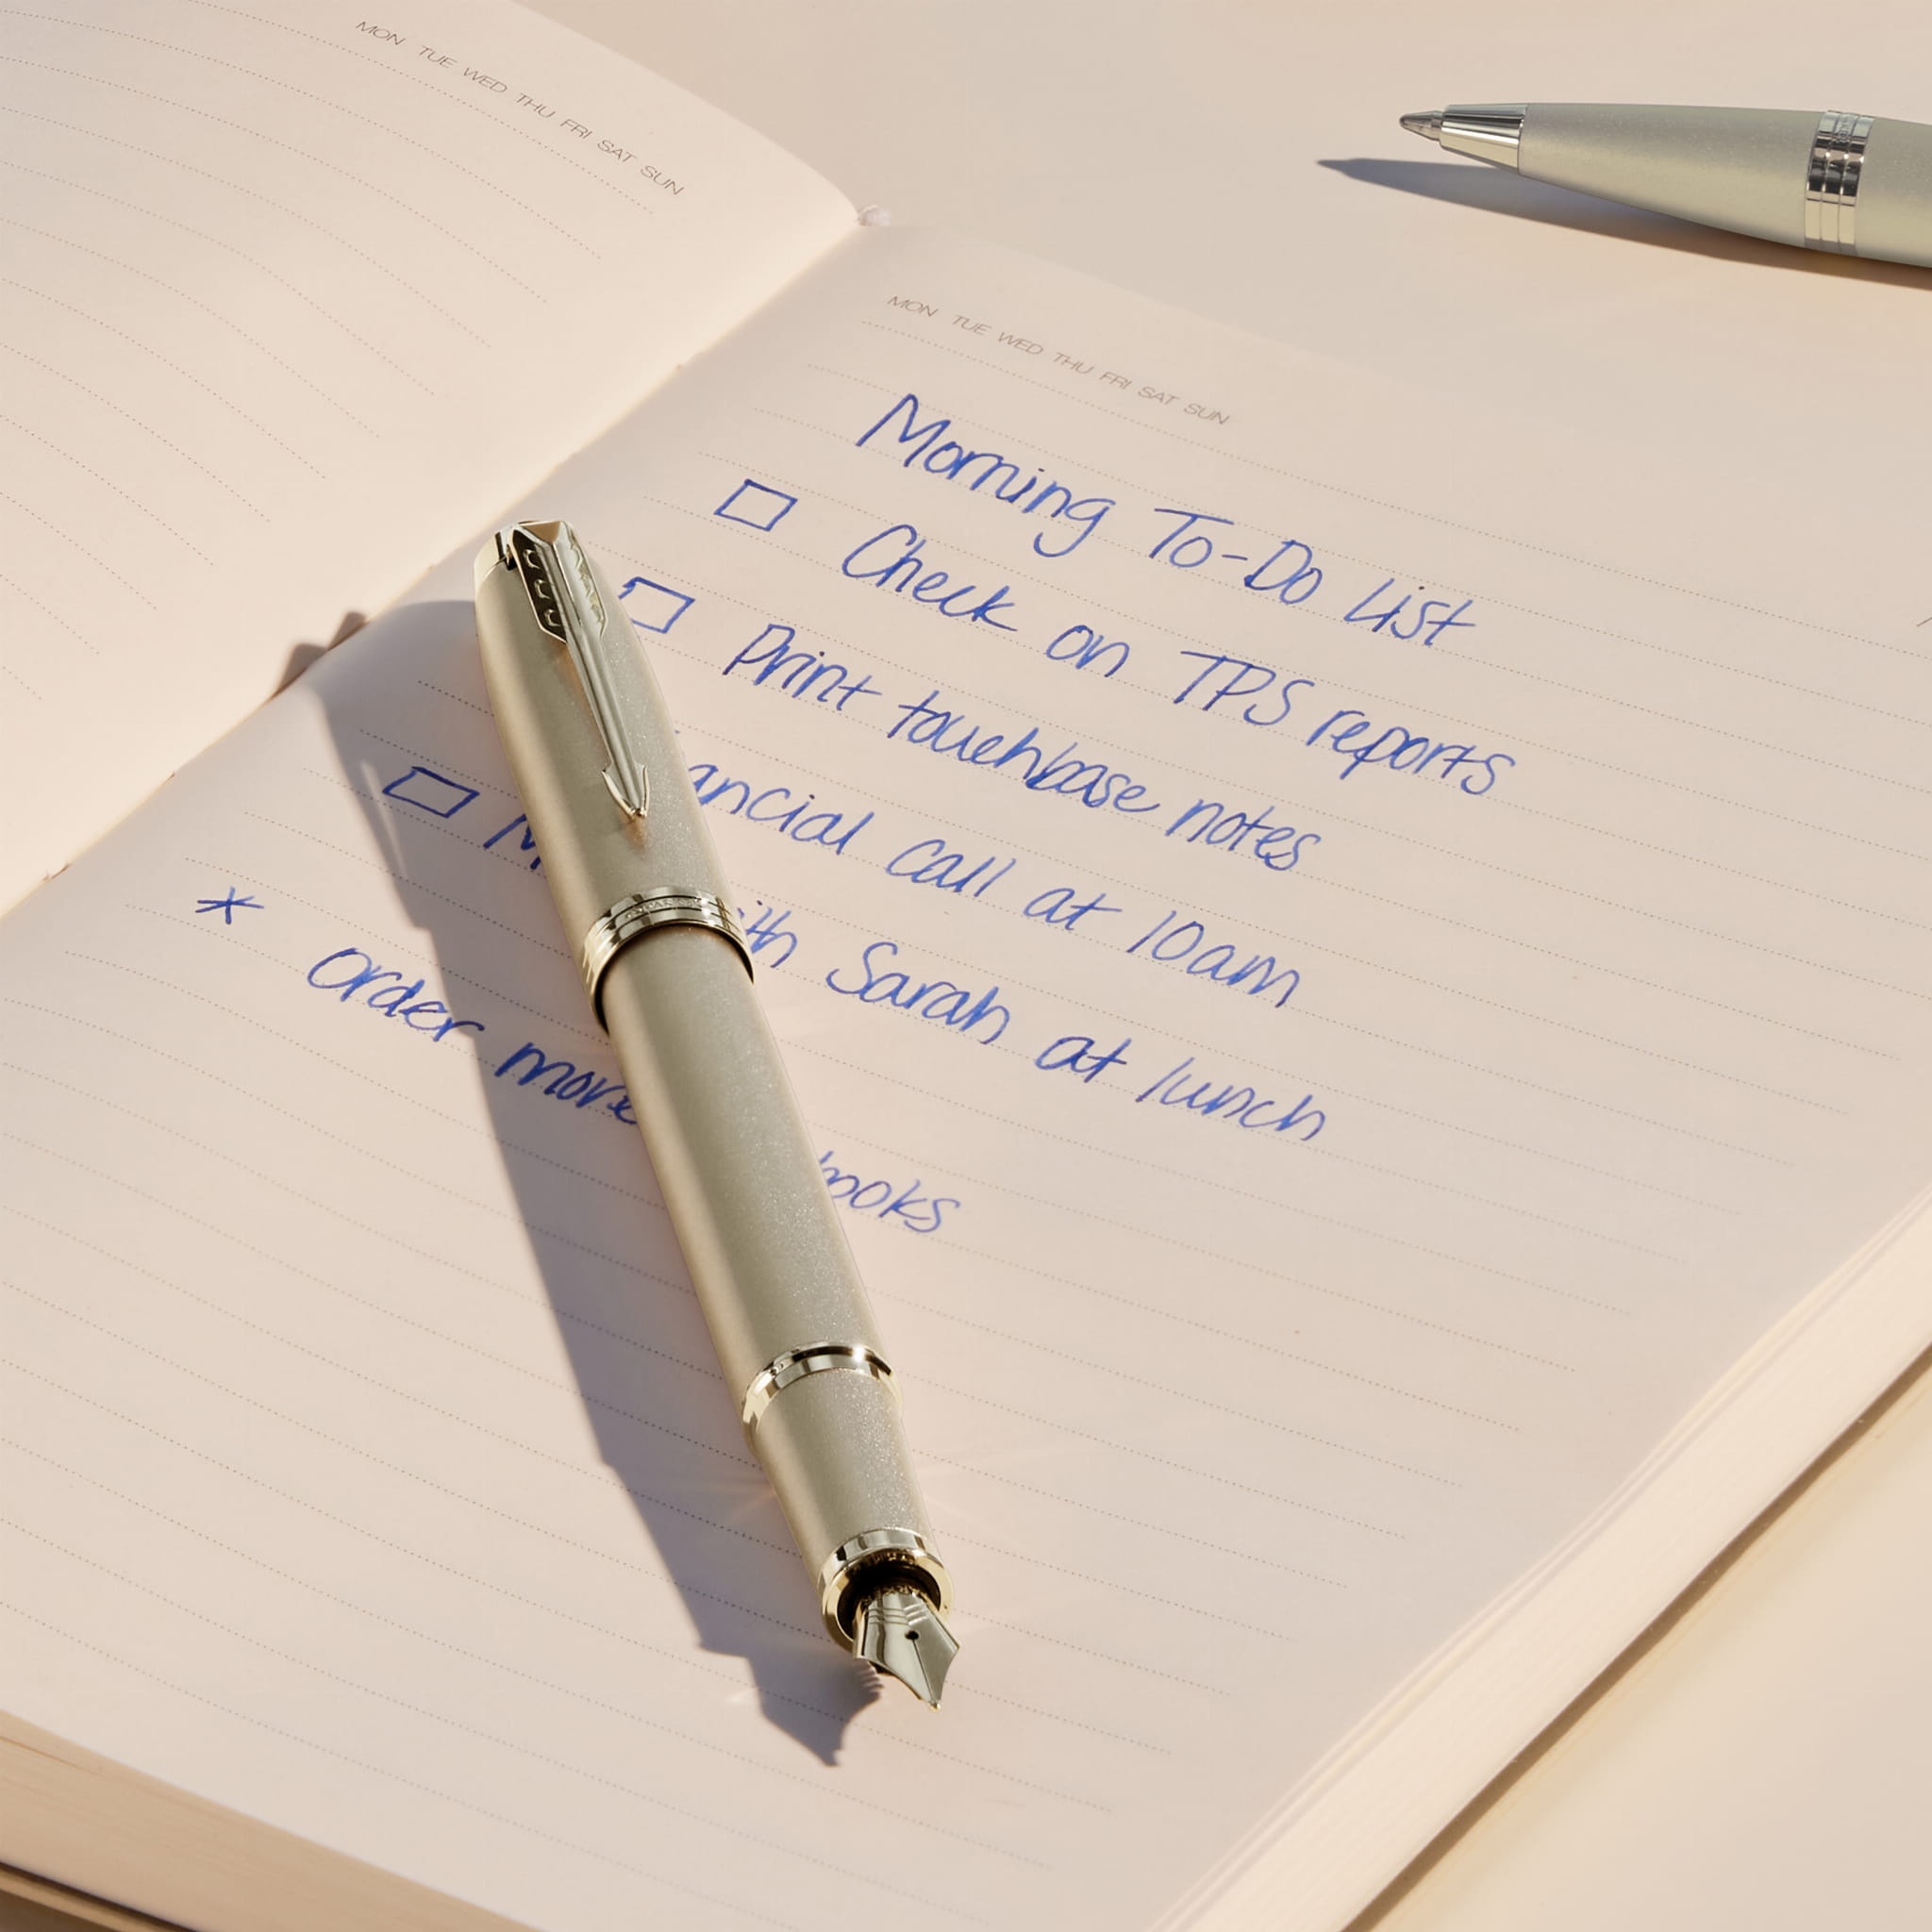 MON TUE WED THU FRI SAT SUN
MON TUE WED THU FRI SAT SUN
Morning To-Do List
Check on TPS reports
Print touchbase notes
ancial call at 10am
M ith Sarah at lunch
* Order more books